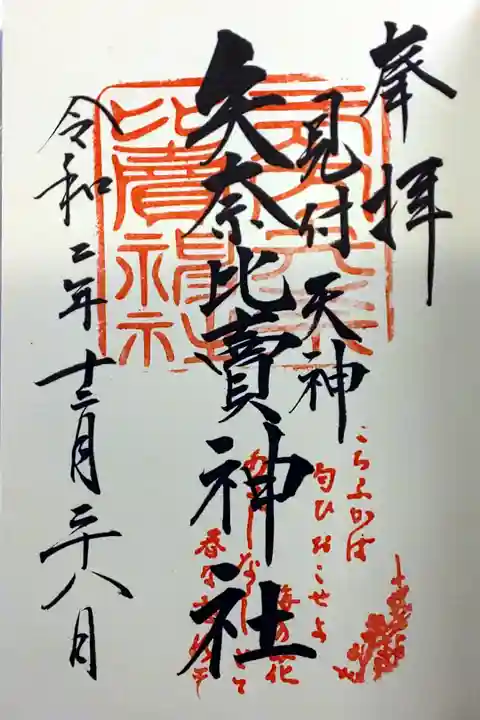 奉拝
見付天神
矢奈比賣神社
令和二年十二月二十八日
こちふかば
匂ひおこせよ
梅の花
あるじなしとて
春な